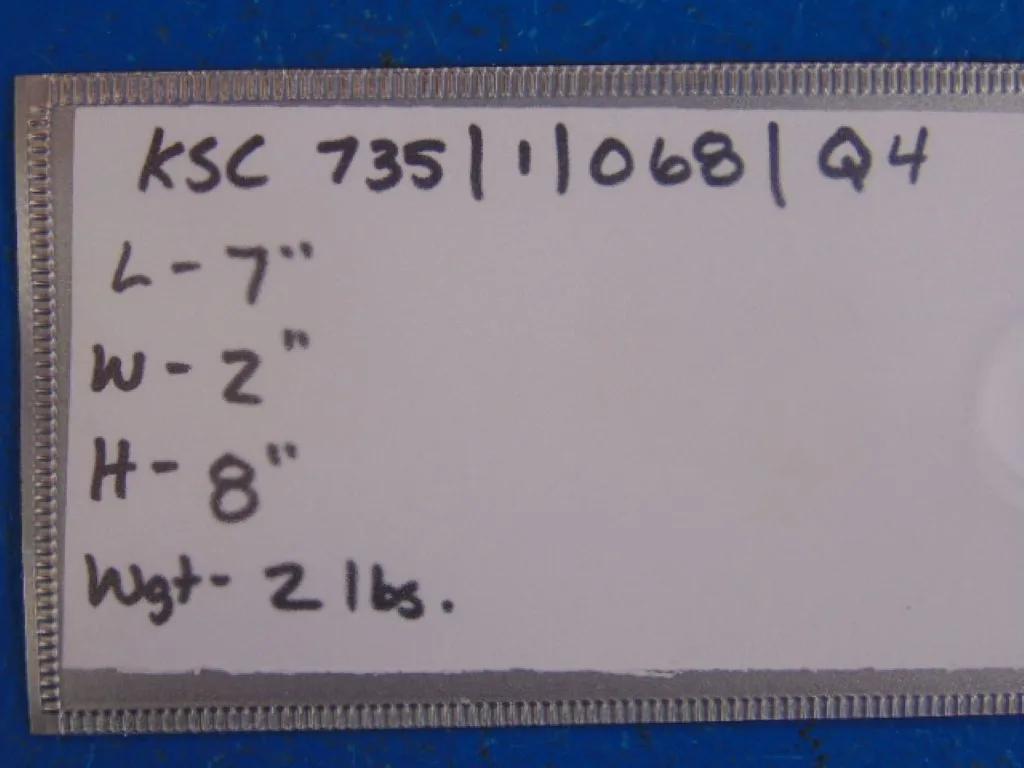 KSC 735|1|068| Q4
L - 7"
W - 2"
H - 8"
Wgt - 2 lbs.